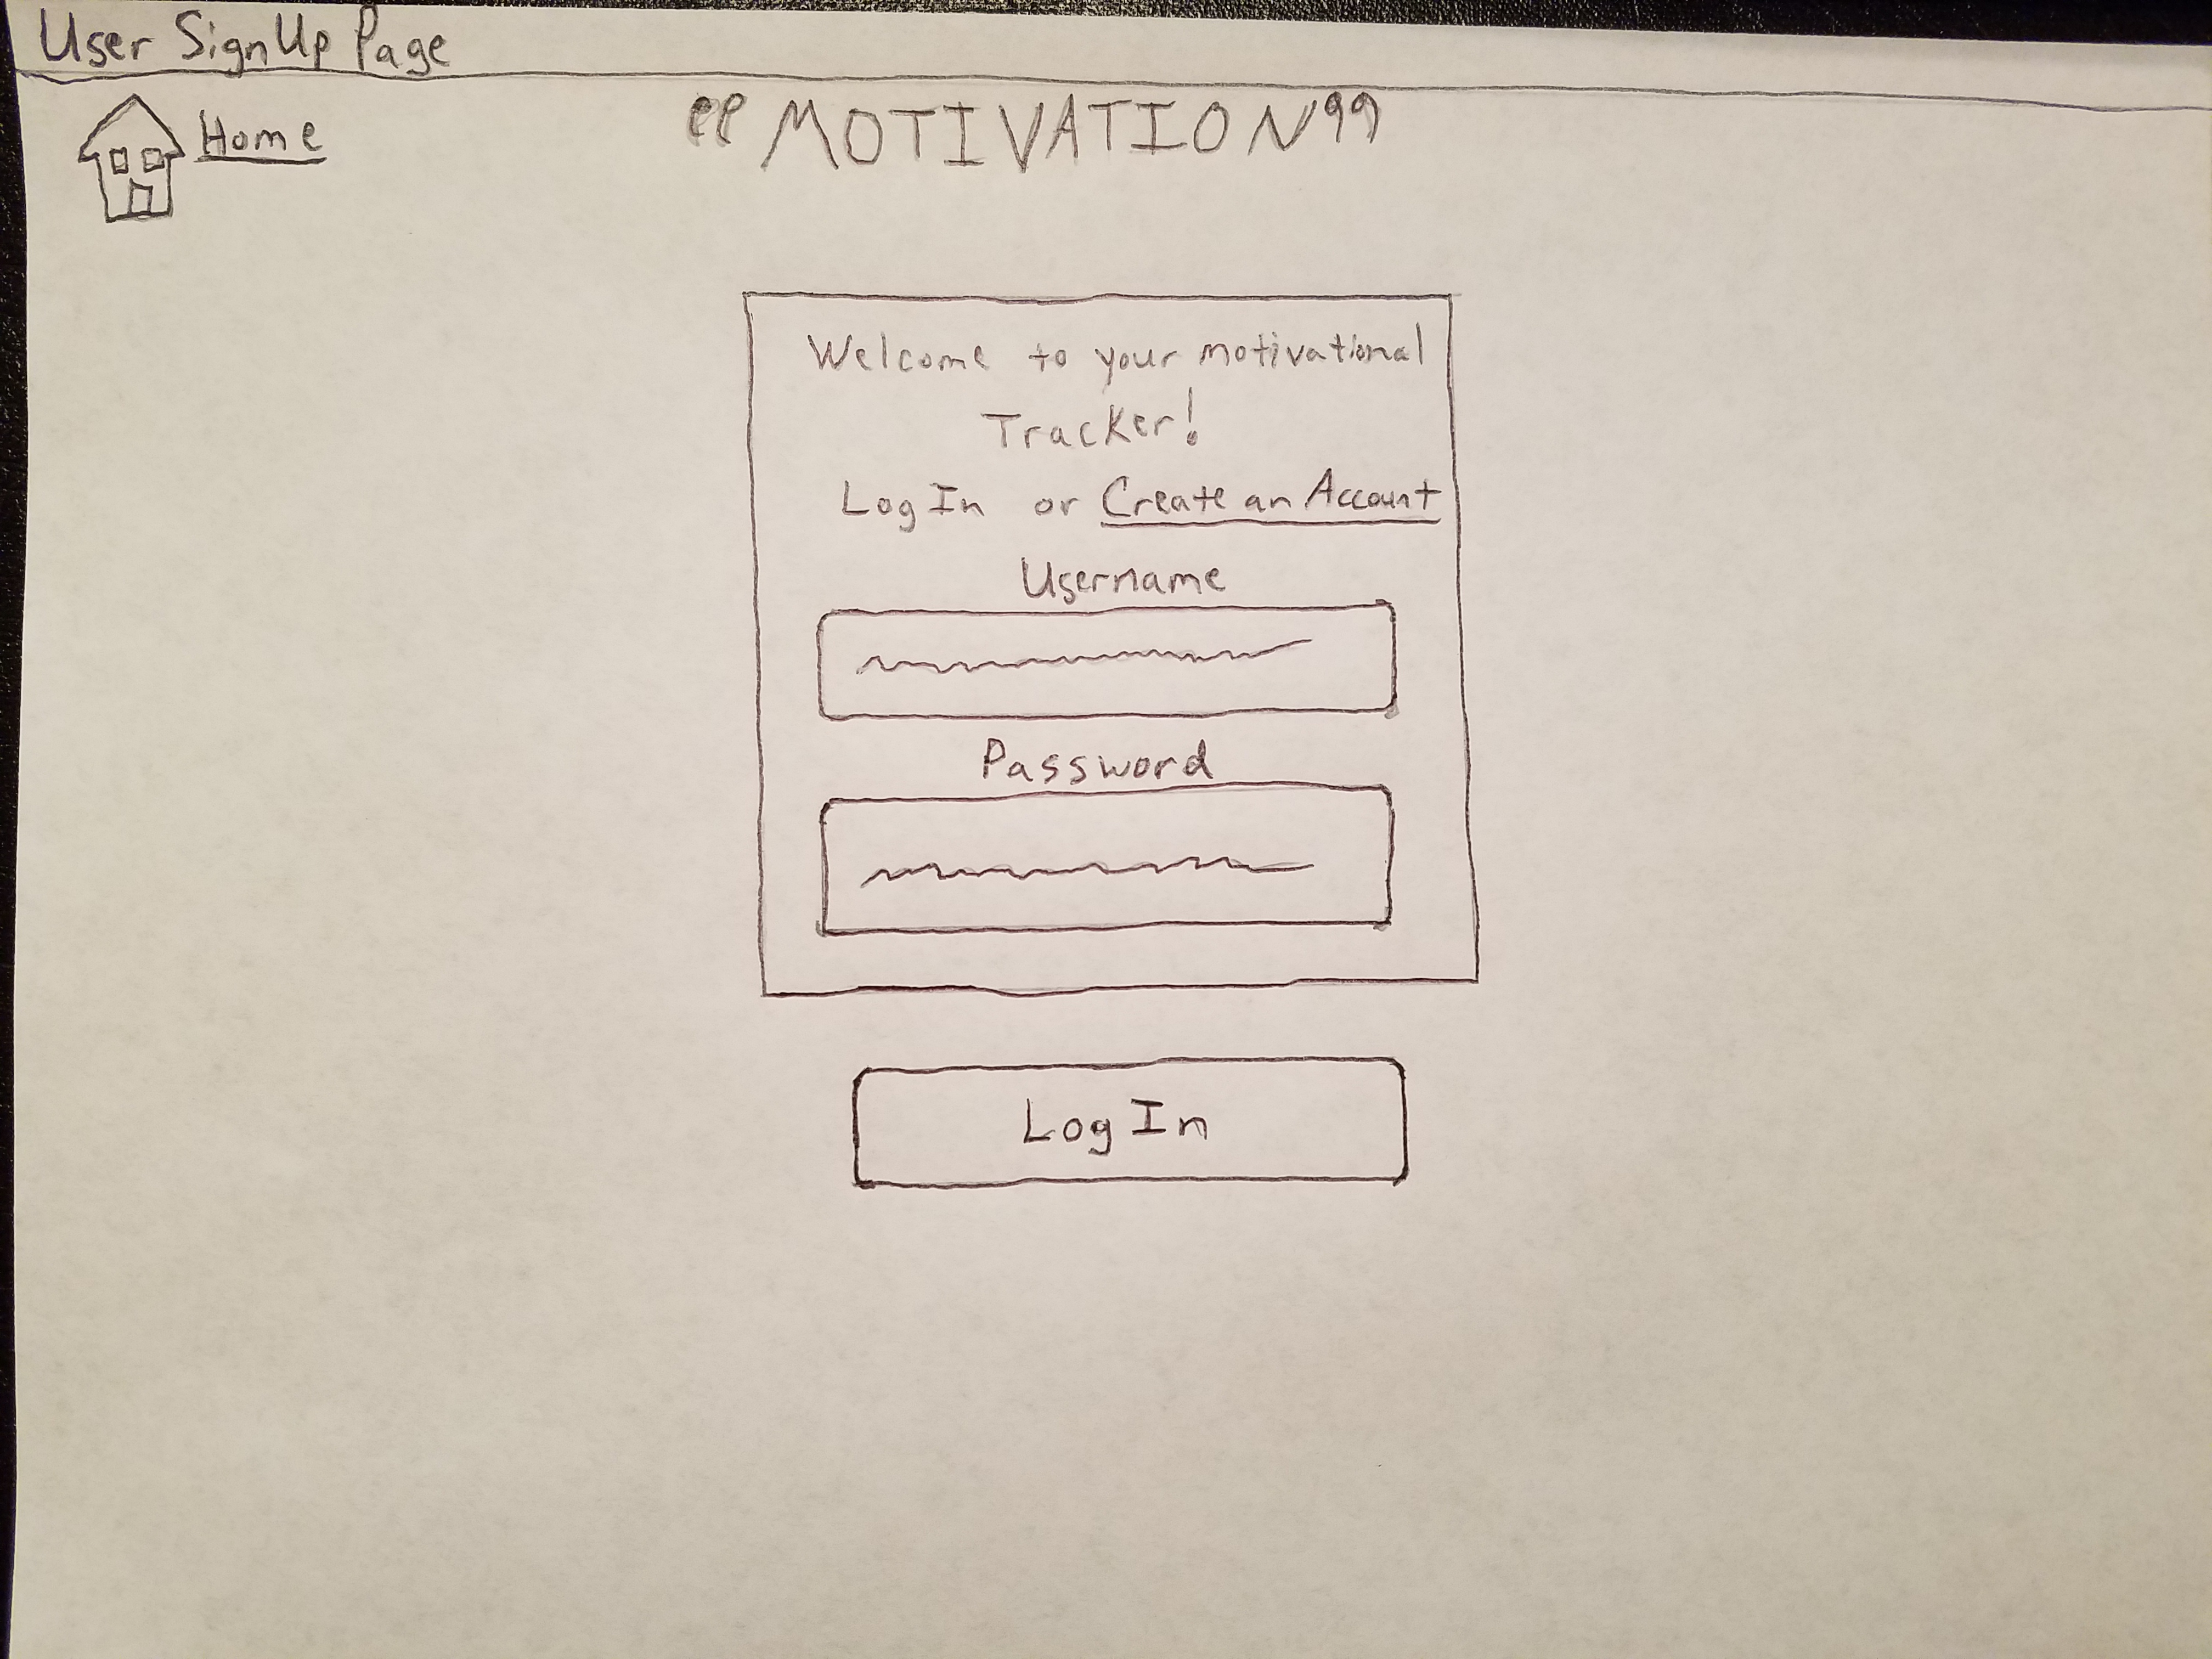 User SignUp Page
Home
“MOTIVATION”
Welcome to your motivational
Tracker!
Log In or Create an Account
Username
Password
Log In